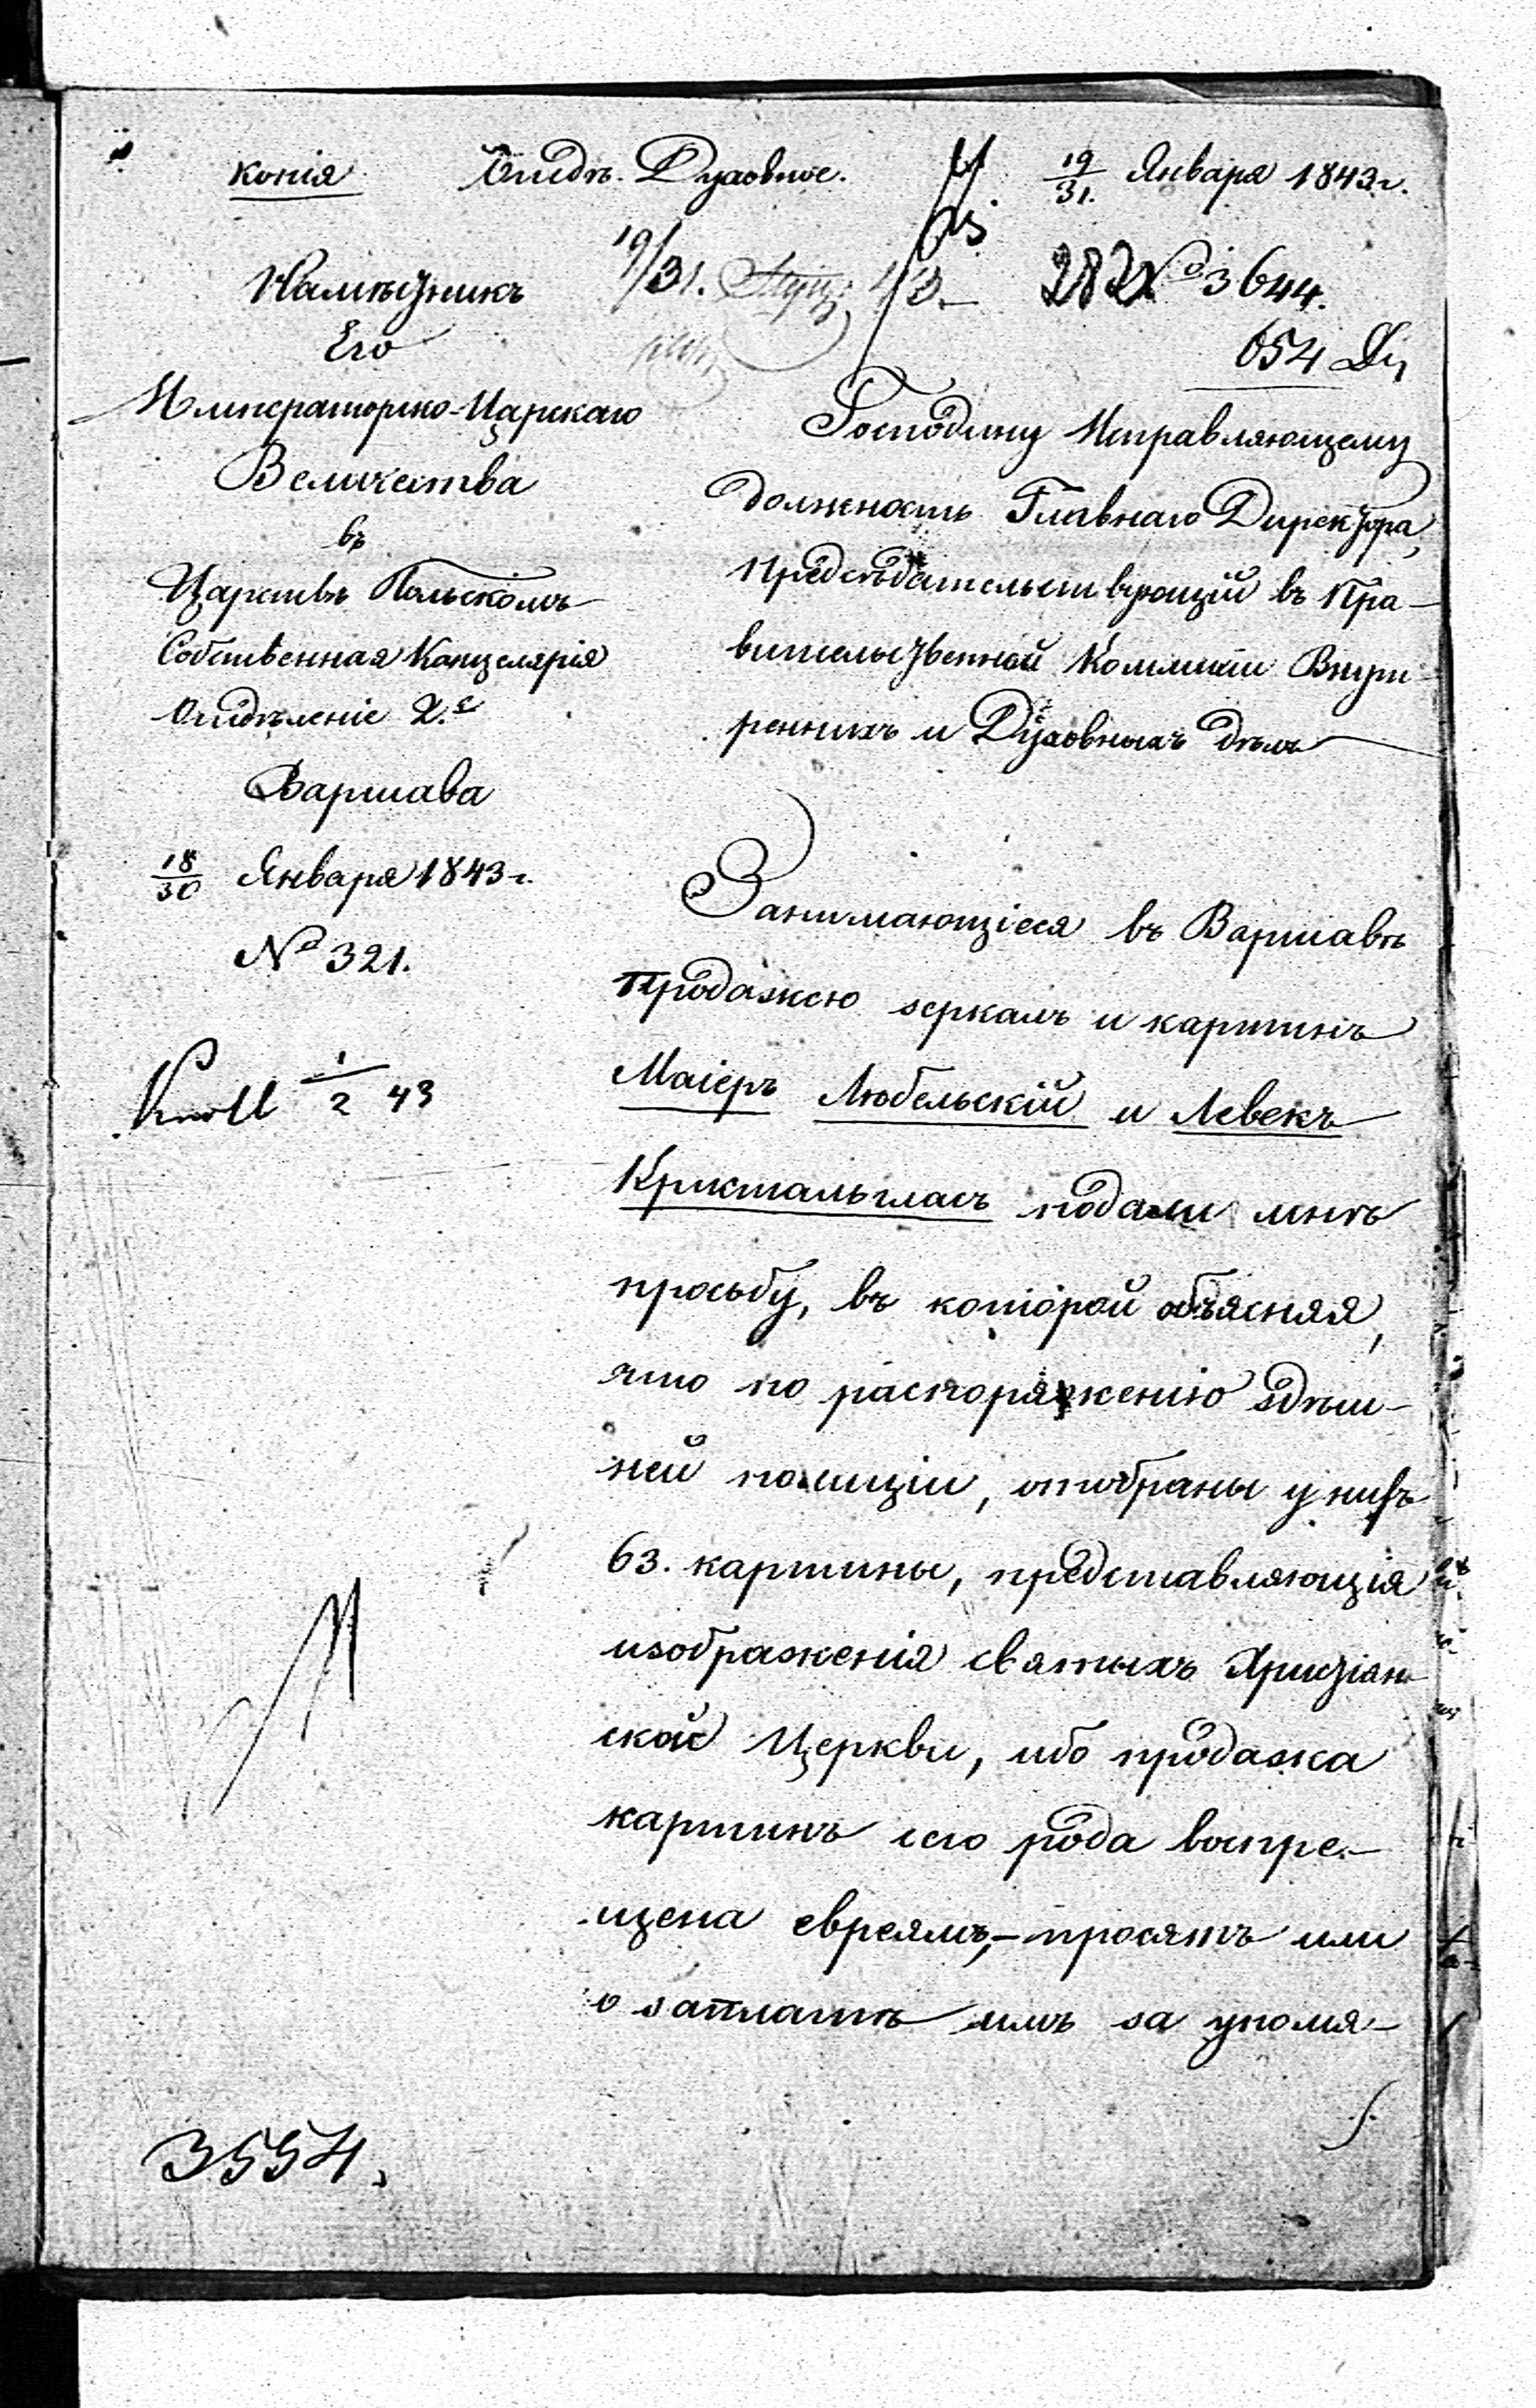 копія Отдѣ. Духовное. 19/31. Января 1843 г.
19/31. 43. 282 № 3644.
654
Намѣстникъ
Его
Императорско-Царскаго
Величества
въ
Царствѣ Польскомъ
Собственная Канцелярія
Отдѣленіе 2.е
Варшава
18/30 Января 1843 г.
№ 321.
1/2 43
Господину Исправляющему
должность Главнаго Директора,
Предсѣдательствующій въ Пра-
вительственной Коммисіи Внут-
реннихъ и Духовныхъ дѣлъ
Занимающіеся въ Варшавѣ
продажею зеркалъ и картинъ
Маіеръ Любельскій и Левекъ
Кристальгласъ подали мнѣ
просьбу, въ которой объясняя,
что по распоряженію здѣш-
ней полиціи, отобраны у нихъ
63. картины, представляющія
изображенія святыхъ Христіан-
ской Церкви, ибо продажа
картинъ сего рода воспре-
щена евреямъ,- просятъ или
о заплатѣ имъ за упомя-
3554.